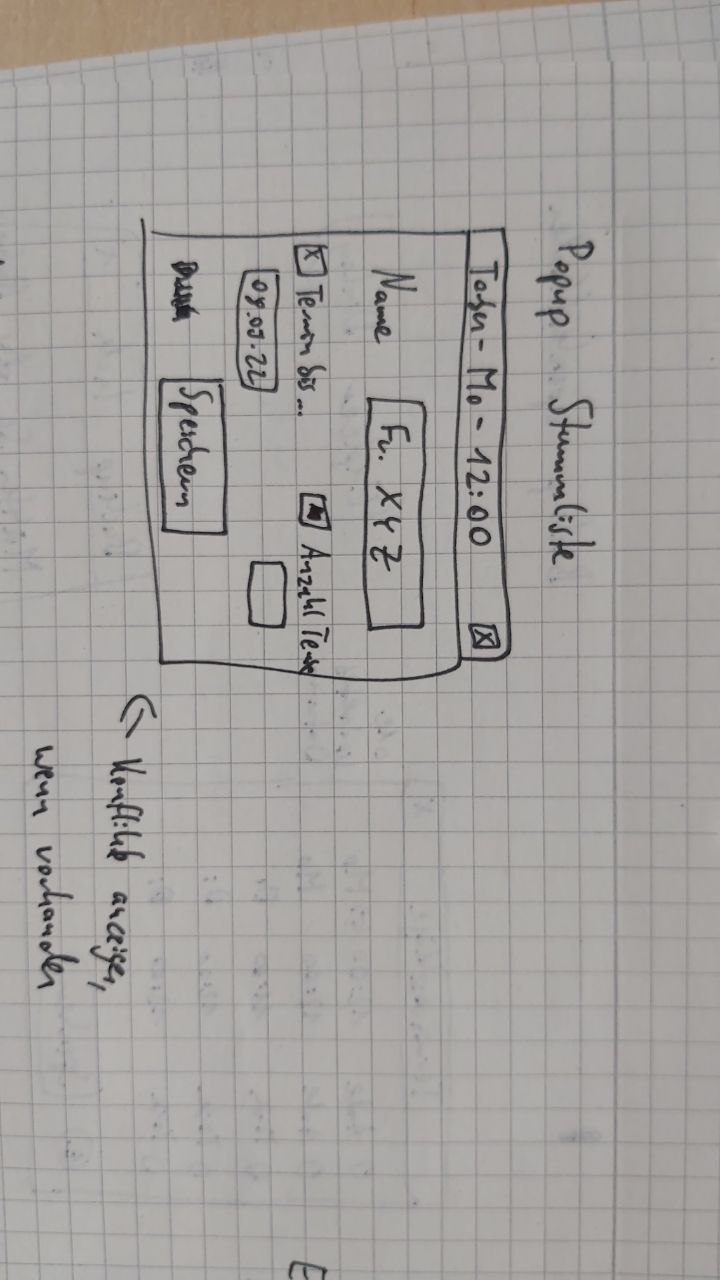 Popup Stammliste
- Mo - 12:00 X
Name Fr. XYZ
X Termin bis... Anzahl
09.05.22
Speichern
Konflikte anzeigen,
wenn vorhanden